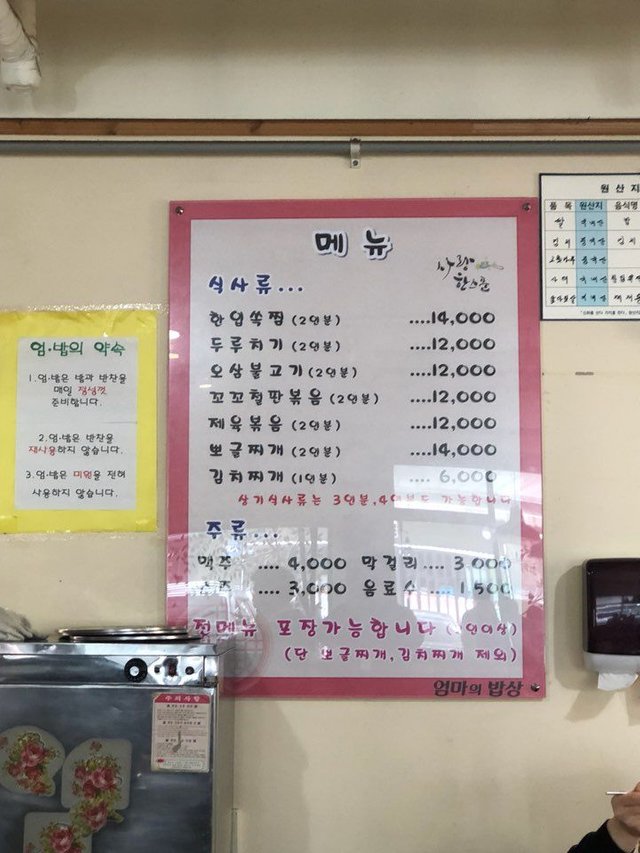 메뉴
사랑
한스푼
식사류...
한입쏙찜 (2인분) ....14,000
두루치기 (2인분) ....12,000
오삼불고기 (2인분) ....12,000
꼬꼬철판볶음 (2인분) ....12,000
제육볶음 (2인분) ....12,000
뽀글찌개 (2인분) ....14,000
김치찌개 (1인분) .... 6,000
상기식사류는 3인분,4인분도 가능합니다
주류...
맥주 .... 4,000 막걸리.... 3,000
소주 .... 3,000 음료수.... 1,500
전메뉴 포장가능합니다 (인이상)
(단 뽀글찌개,김치찌개 제외)
엄마의 밥상
엄·밥의 약속
1.엄·밥은 밥과 반찬을
매일 정성껏
준비합니다.
2.엄·밥은 반찬을
재사용하지 않습니다.
3.엄·밥은 미원을 전혀
사용하지 않습니다.
원산지
품목 원산지 음식명
쌀 국내산 밥
주의사항